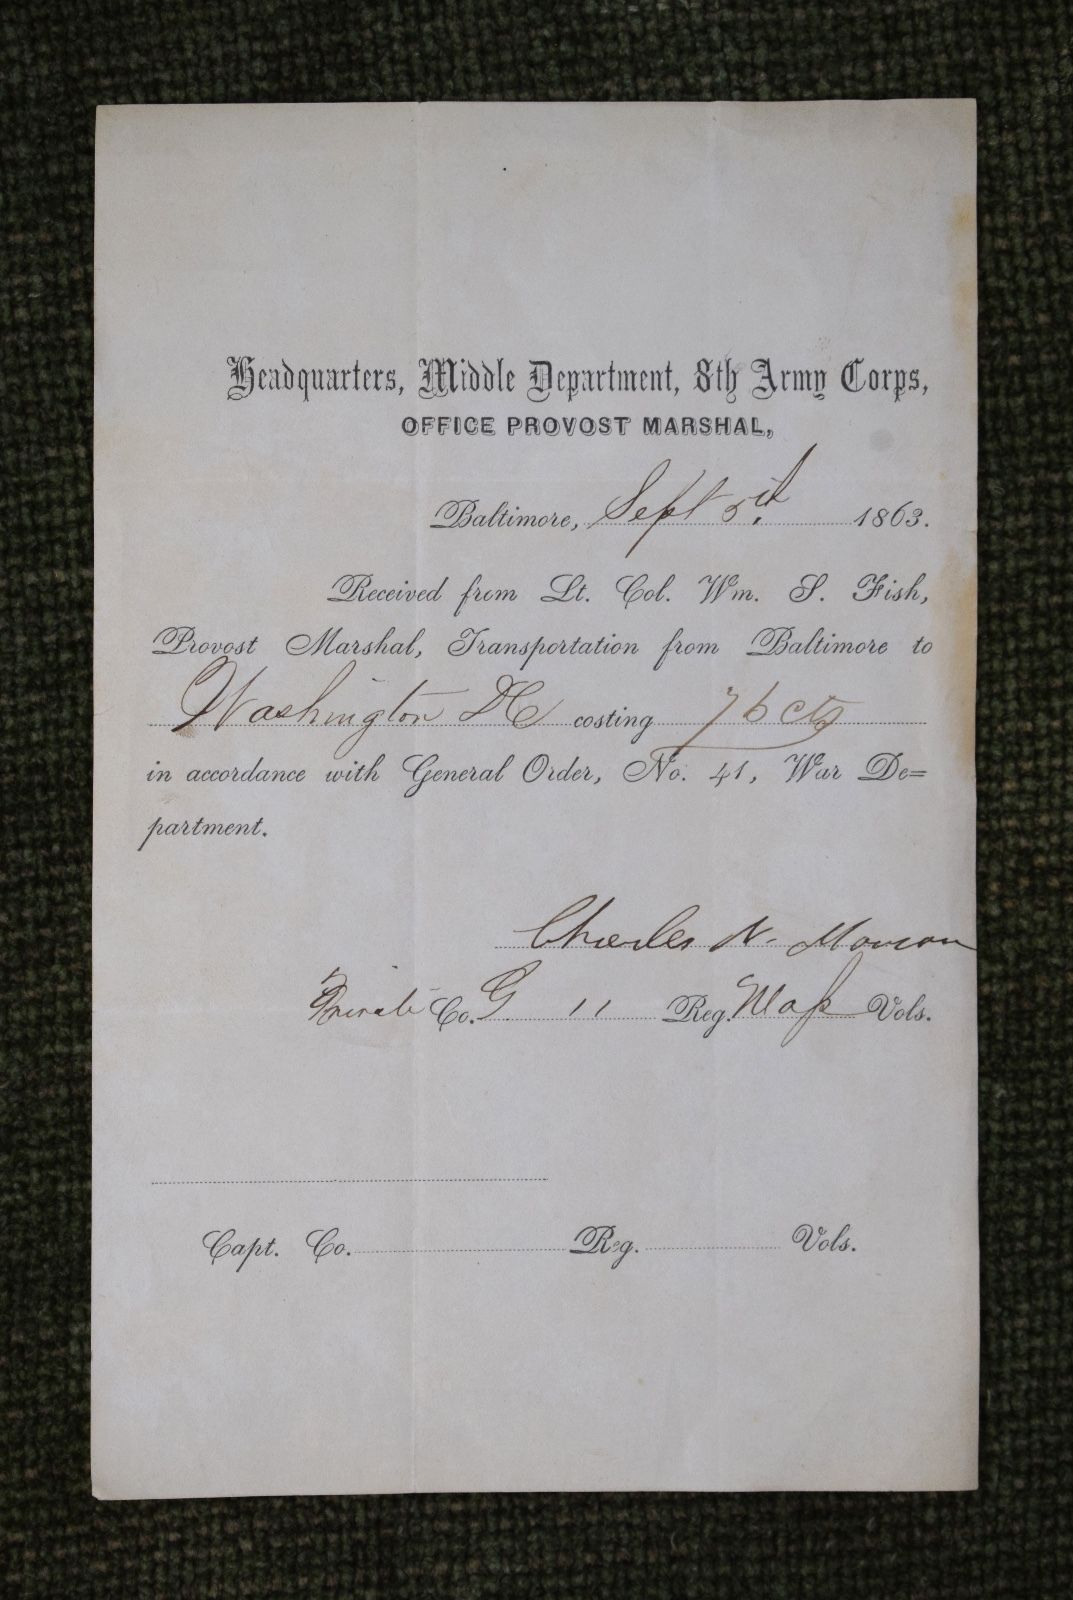 Headquarters, Middle Department, 8th Army Corps,
OFFICE PROVOST MARSHAL,
Baltimore, Sept 5th 1863.
Received from Lt. Col. Wm. S. Fish,
Provost Marshal, Transportation from Baltimore to
Washington DC costing 76 cts
in accordance with General Order, No. 41, War De=
partment.
Charles N.
Private Co. G 11 Reg. Mass Vols.
Capt. Co. Reg. Vols.